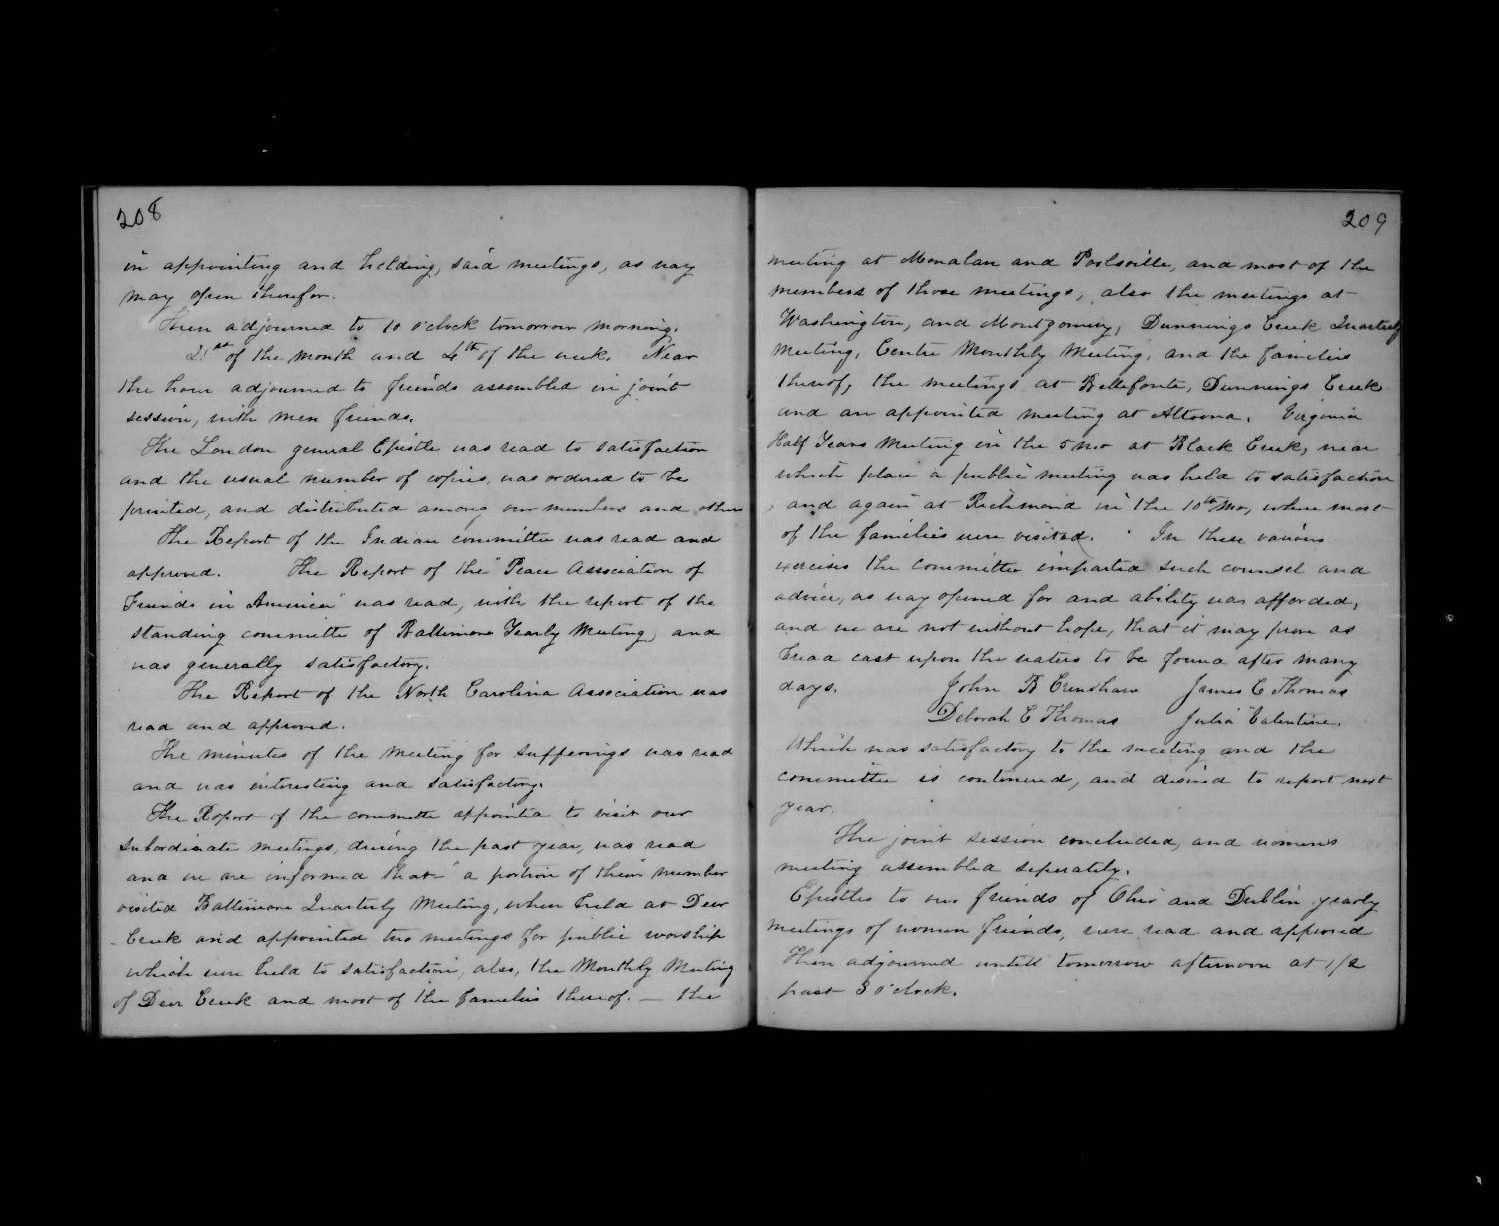 208
in appointing and holding, said meetings, as way
may open therefor.
Then adjourned to 10 o'clock tomorrow morning.
21st of the month and 4th of the week. Near
the hour adjourned to friends assembled in joint
session, with men friends.
The London general Epistle was read to satisfaction
and the usual number of copies, was ordered to be
printed, and distributed among our members and others
The Report of the Indian committee was read and
approved. The Report of the "Peace Association of
Friends in America" was read, with the report of the
standing committe of Baltimore Yearly Meeting, and
was generally satisfactory.
The Report of the North Carolina Association was
read and approved.
The minutes of the Meeting for Sufferings was read
and was interesting and satisfactory.
The Report of the committe appointed to visit our
Subordinate meetings, during the past year, was read
and we are informed that "a portion of their number
visited Baltimore Quarterly Meeting, when held at Deer
Creek and appointed two meetings for public worship
which were held to satisfaction, also, the Monthly Meeting
of Deer Creek and most of the families thereof. — the
209
meeting at Monalan and Poolsville, and most of the
members of those meetings, also the meetings at
Washington, and Montgomery, Dunnings Creek Quarterly
Meeting, Centre Monthly Meeting, and the families
thereof, the meetings at Bellefonte, Dunnings Creek
and an appointed meeting at Altoona. Virginia
Half Years Meeting in the 5 mo at Black Creek, near
which place a public meeting was held to satisfaction
, and again at Richmond in the 10th mo, where most
of the families were visited. In these various
exercises the committee imparted such counsel and
advice, as way opened for and ability was afforded,
and we are not without hope, that it may prove as
bread cast upon the waters to be found after many
days. John B Crenshaw James C Thomas
Deborah C Thomas Julia Valentine.
Which was satisfactory to the meeting and the
committee is continued, and desired to report next
year.
The joint session concluded, and women's
meeting assembled seperately.
Epistles to our friends of Ohio and Dublin yearly
meetings of women friends, were read and approved
Then adjourned untill tomorrow afternoon at 1/2
past 3 o'clock.